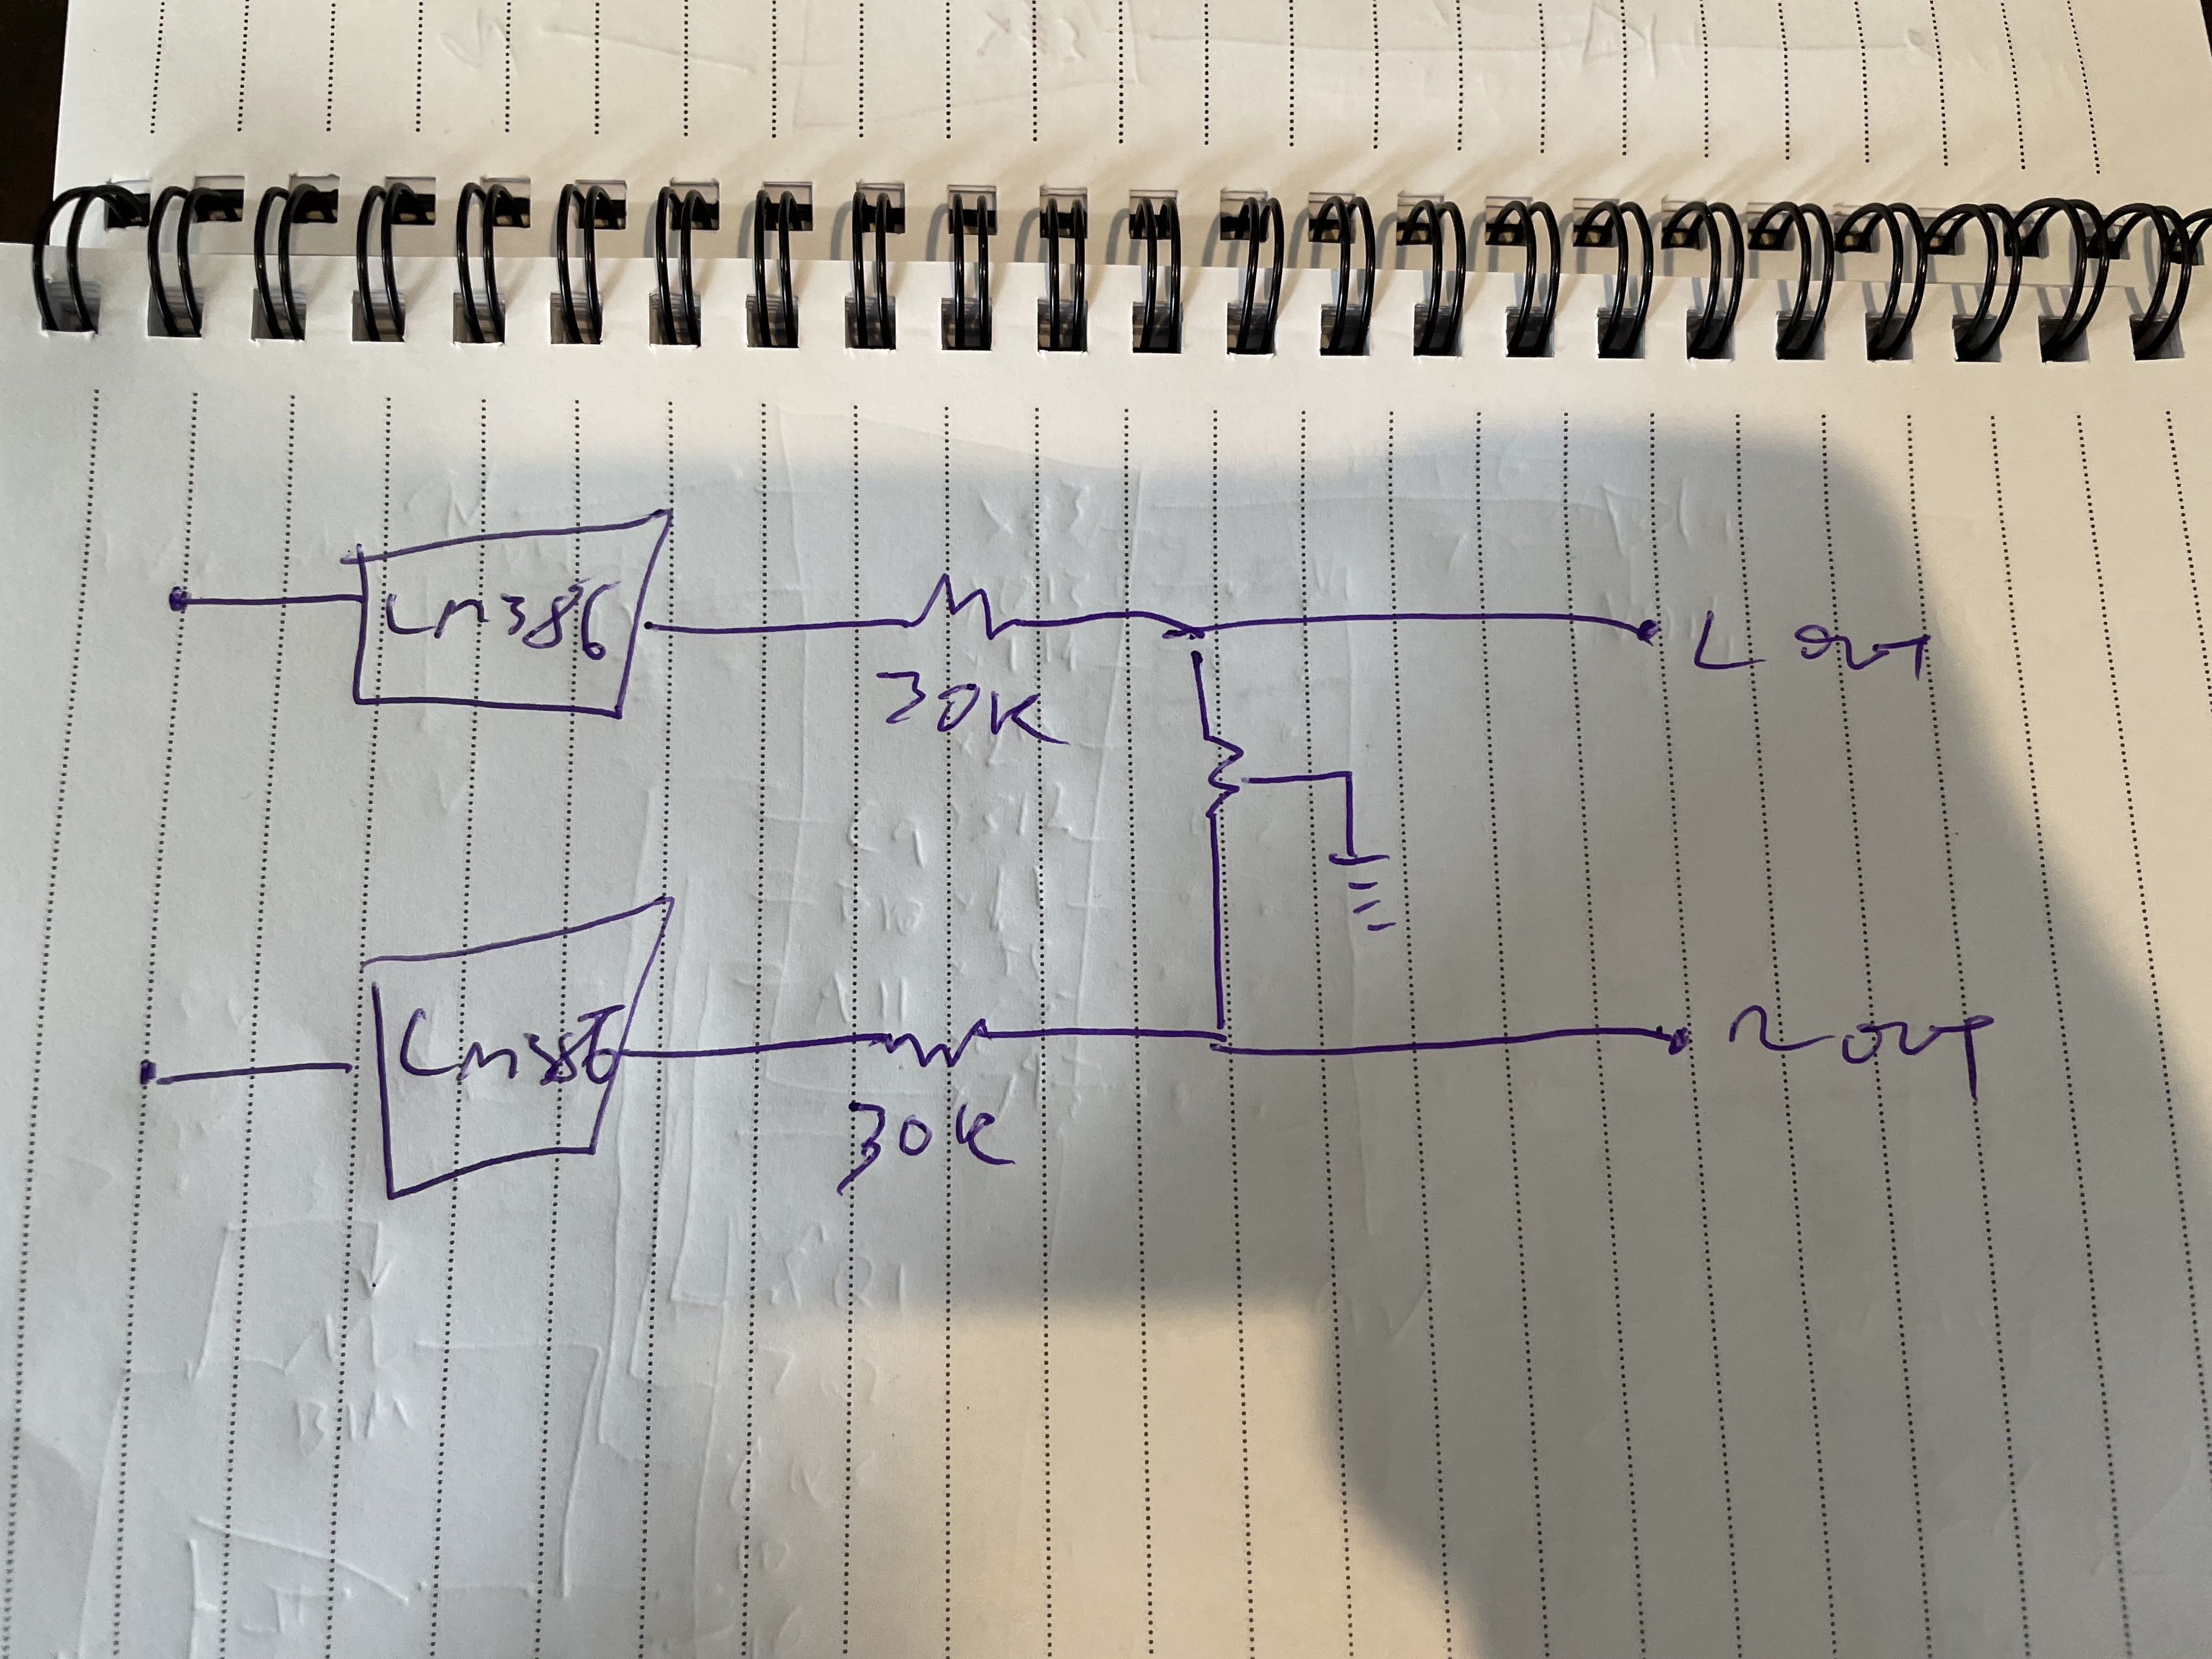 LM386
30K
L out
LM386
30K
R out